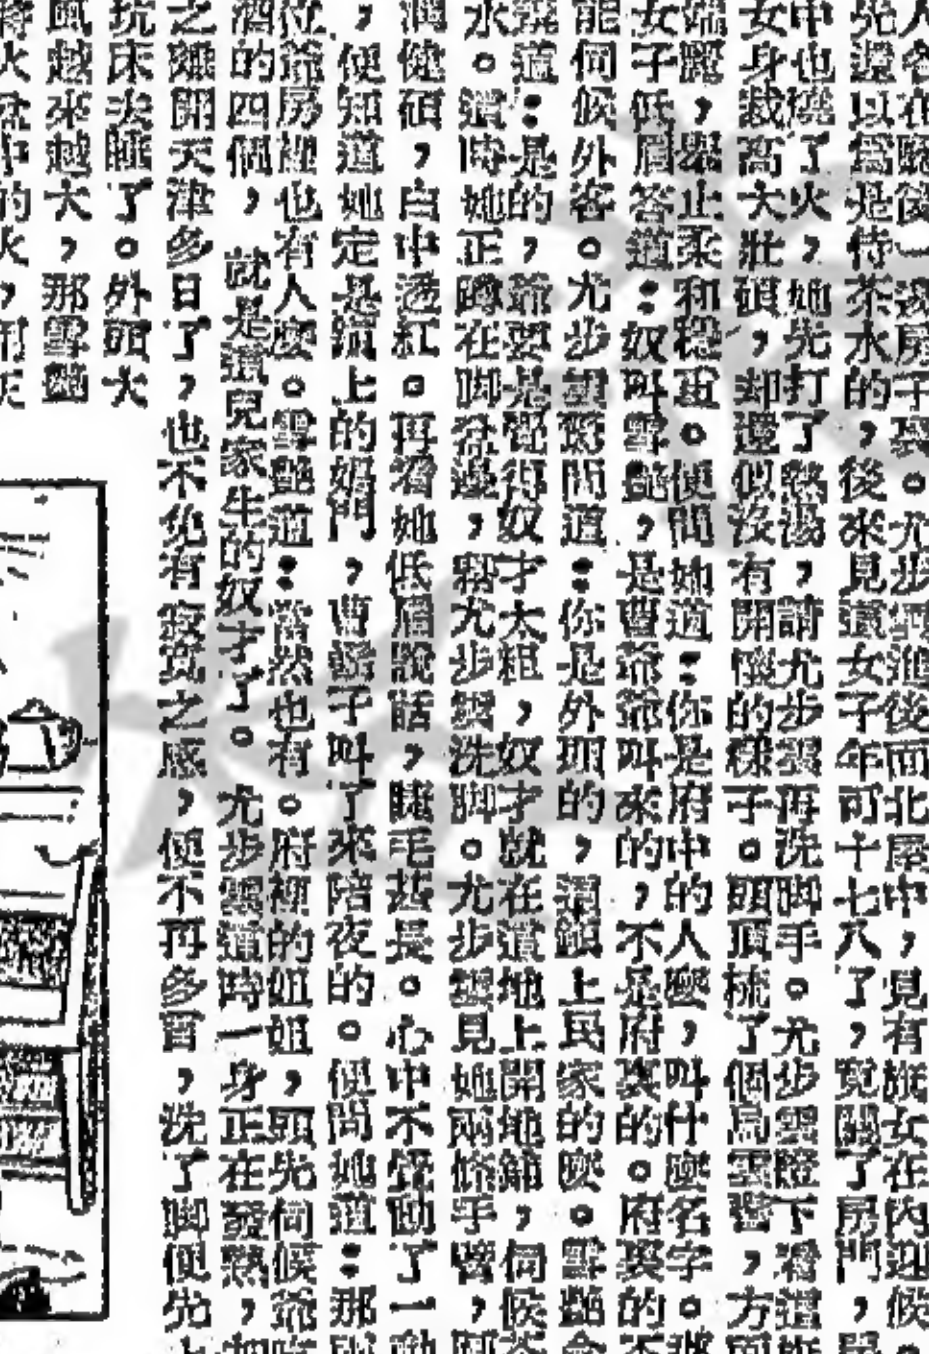 人各在廳後一邊房子裏。尤步雲進後面北屋中，見有旗女在內迎候。
先還以為是侍茶水的，後來見這女子年可十七八了，竟關了房門，
中也燒了火，她先打了熱湯，請尤步雲再洗脚手。尤步雲燈下看這
女身裁高大壯碩，却還似沒有開懷的樣子。頭頂梳了個烏雲髻，方面
端麗，舉止柔和穩重。便問她道：你是府中的人麼，叫什麼名字。那
女子低眉答道：奴叫雪艷，是曹爺爺叫來的，不是府裏的。府裏的不
能伺候外客。尤步雲驚問道：你是外頭的，這鎮上民家的麼。雪艷含
道：是的，爺要是覺得奴才太粗，奴才就在這地上開地鋪，伺候茶
水。這時她正蹲在脚盆邊，幫尤步雲洗脚。尤步雲見她兩條手臂，圓
潤健碩，白中透紅。再看她低眉說話，睫毛甚長。心中不覺動了一動
，便知道她定是鎮上的娼門，曹鬍子叫了來陪夜的。便問她道：那兩
位爺房裡也有人麼。雪艷道：當然也有。府裡的姐姐，頭先伺候爺
酒的四個，就是這兒家生的奴才了。尤步雲這時一身正在發熱，加
之離開天津多日了，也不免有寂寞之感，便不再多言，洗了脚便先上
炕床去睡了。外頭大
風越來越大，那雪艷
將火盆中的火，用灰